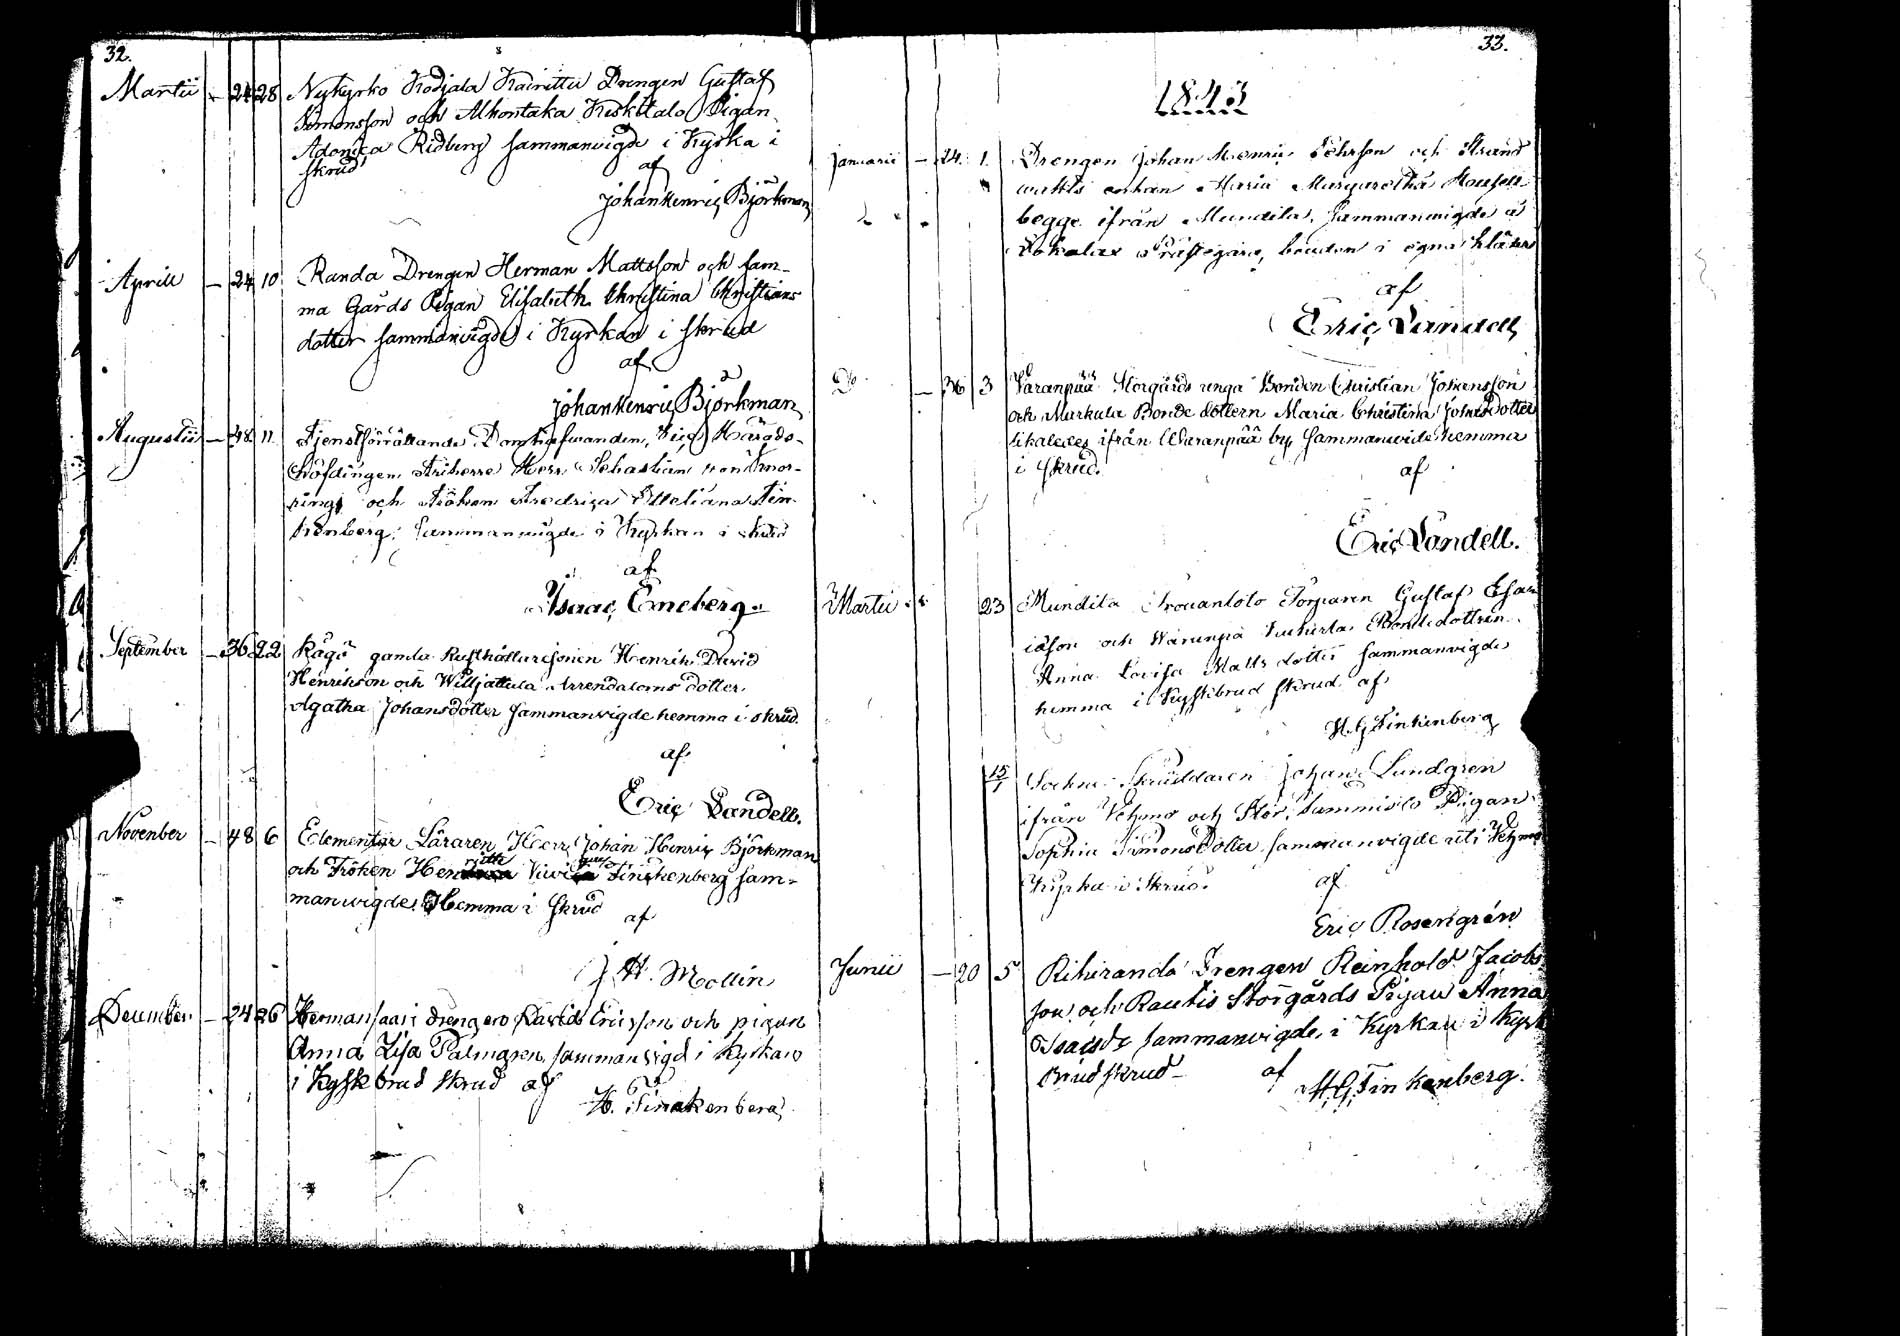 32.
Martii - 24 28 Nykyrko Kodjala Kairittu Drengen Gustaf
Simonsson och Alhontaka Kiskttalo Pigan
Adonica Ridberg sammanvigde i Kyrka i
skrud af
Johan Henric Björkman
Aprill - 24 10 Randa Drengen Herman Mattsson och sam-
ma Gårds Pigan Elisabeth Christina Christians
dotter sammanvigde i Kyrkan i skrud
af
Johan Henric Björkman
Augustii - 48 11 Tjenstförrättande Domhafwanden, Vice Härads-
höfdingen Friherre Herr Sebastian von Knor-
ring och Fröken Fredrica Uleliana Fin-
kenberg, sammanvigde i Kyrkan i skrud
af
Isaac Emeberg
September - 36 22 Kågi gamla Rusthållaresonen Henrik David
Henrikson och Willjattula Arrendatorns dotter
Agatha Johansdotter sammanvigde hemma i skrud.
af
Eric Landell.
November - 48 6 Elementar Läraren Herr Johan Henric Björkman
och Fröken Hen Finckenberg sam-
manvigde Hemma i skrud af
J. H. Mollin
December - 24 26 Hermansaari drengen David Ericsson och pigan
Anna Lisa Palmgren sammanvigd i Kyrkan
i Kyskbrud skrud af
H. G. Finckenberg
33.
1843
Januarii - 24. 1. Drengen Johan Henric Pehrson och Strand
enkan Maria Margaretha
begge ifrån Mundila, sammanvigde å
Lokalax Prästegård, bruden i egna kläder
af
Eric Landell
D:o - 36 3 Varanpää Storgårds unga Bonden Christian Johansson
och Markula Bonde dottern Maria Christina Johansdotter
likaledes ifrån Waranpää by sammanvide hemma
i skrud. af
Eric Landell.
Martii 23 Mundila Torparen Gustaf Esai
idson och Waranpä Bondedottren
Anna Lovisa Matts dotter sammanvigde
hemma i Kyskbrud skrud af
H. G. Finkenberg
15 Sockne Skräddaren Johan Lundgren
ifrån Vehmo och Stor Sammislo Pigan
Sophia SimonsDotter sammanvigde uti Vehmo
Kyrka i Skrud. af
Eric Rosengrén
Junii - 20 5 Rihiranda Drengen Reinhold Jacobs
son och Rautis Storgårds Pigan Anna
Isaäsdr sammanvigde i Kyrkan i Kysk
brud skrud - af
H. G. Finkenberg.